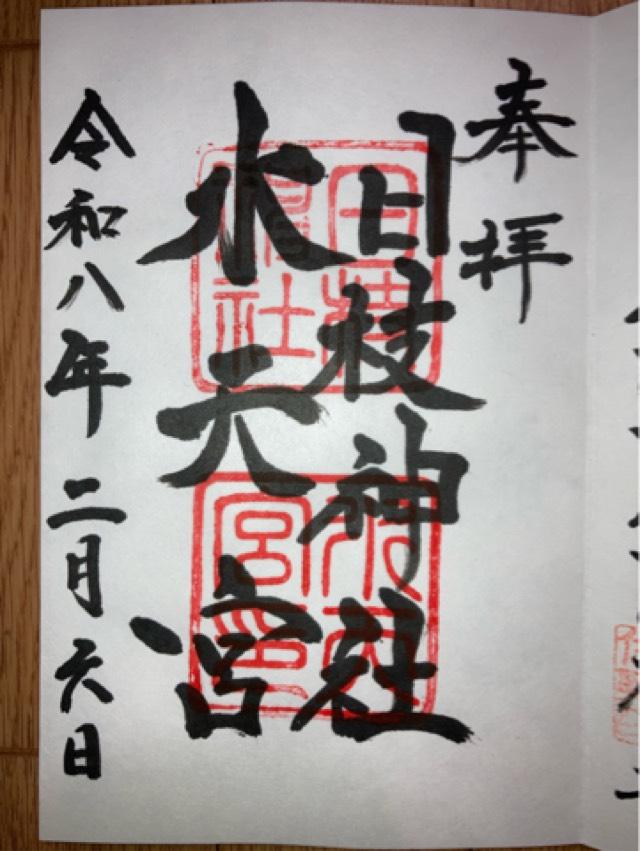 奉拝
日枝神社
水天宮
令和八年二月六日